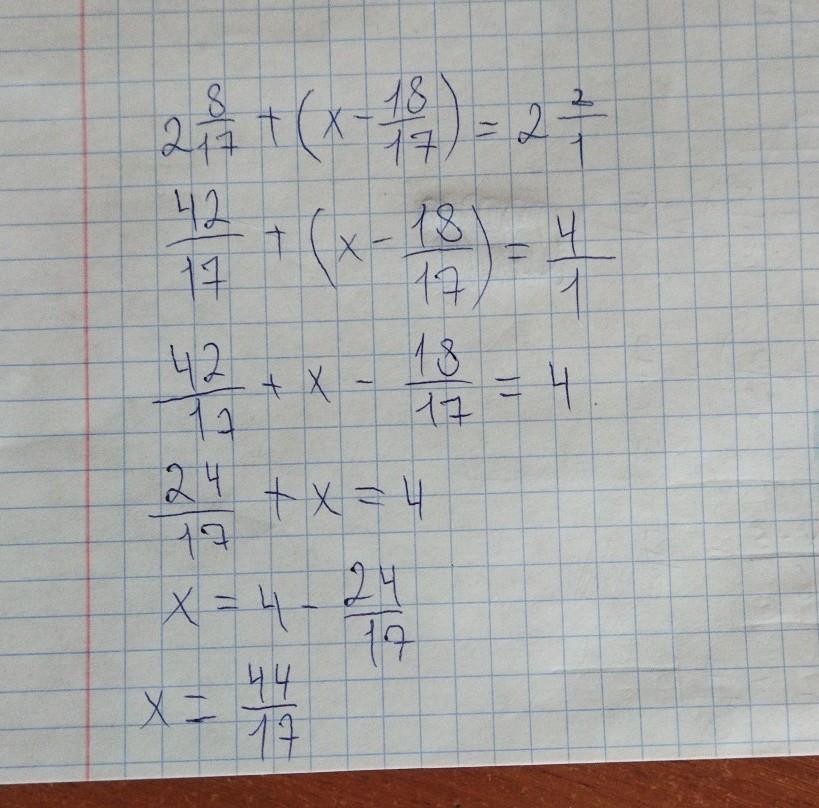 2 8/17 + (x - 18/17) = 2 2/1
42/17 + (x - 18/17) = 4/1
42/17 + x - 18/17 = 4
24/17 + x = 4
x = 4 - 24/17
x = 44/17